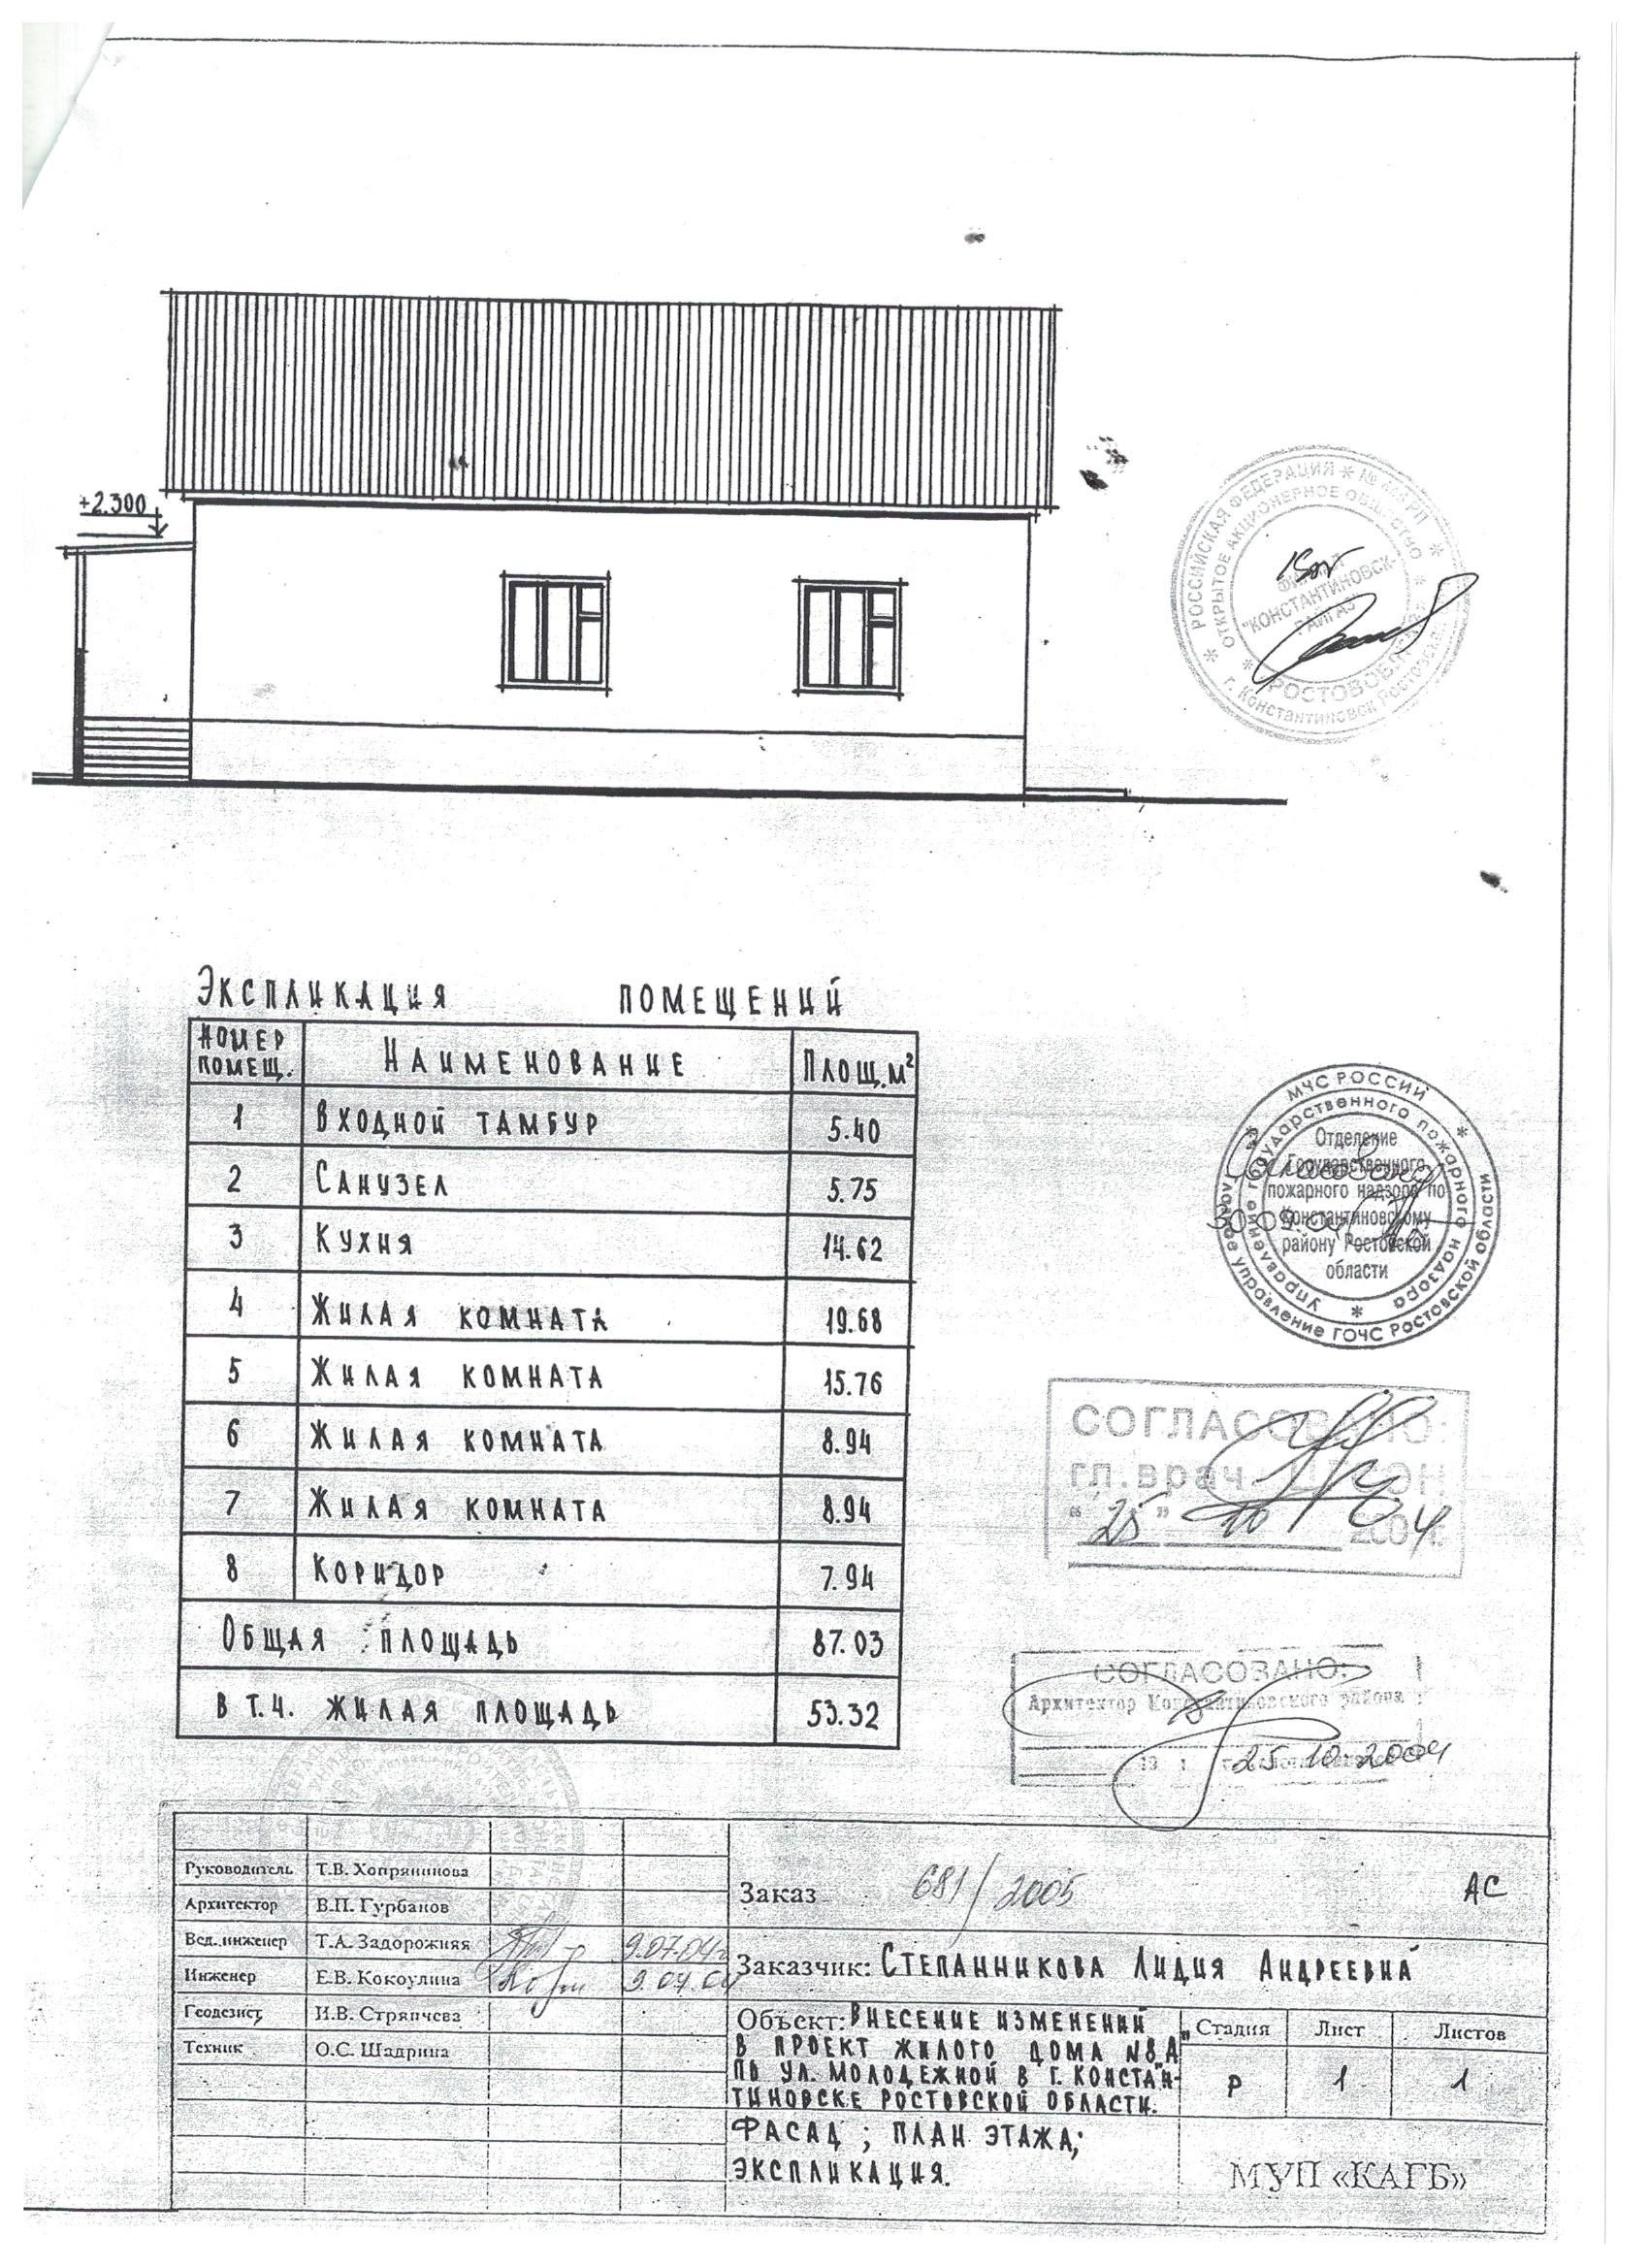 +2.300
РОССИЙСКАЯ ФЕДЕРАЦИЯ
ОТКРЫТОЕ АКЦИОНЕРНОЕ ОБЩЕСТВО
"КОНСТАНТИНОВСК-
г. Константиновск
Экспликация помещений
Номер помещ.
Наименование
Площ. м²
1 Входной тамбур 5.40
2 Санузел 5.75
3 Кухня 14.62
4 Жилая комната 19.68
5 Жилая комната 15.76
6 Жилая комната 8.94
7 Жилая комната 8.94
8 Коридор 7.94
Общая площадь 87.03
В т.ч. жилая площадь 53.32
МЧС РОССИИ
управление ГОЧС Ростовской области
Управление государственного пожарного надзора
Отделение
Государственного
пожарного надзора по
Константиновскому
району Ростовской
области
СОГЛАСОВАНО:
гл.врач
"25" 10 2004г.
СОГЛАСОВАНО:
Архитектор Константиновского района
25.10.2004
Руководитель Т.В. Хопрянинова
Архитектор В.П. Гурбанов
Вед. инженер Т.А. Задорожняя 9.07.04г
Инженер Е.В. Кокоулина 9.07.04
Геодезист И.В. Стряпчева
Техник О.С. Шадрина
Заказ 681/2005 АС
Заказчик: Степанникова Лидия Андреевна
Объект: Внесение изменений
в проект жилого дома №8„А"
по ул. Молодежной в г. Констан-
тиновске Ростовской области.
Стадия Лист Листов
Р 1 1
Фасад; план этажа;
экспликация.
МУП «КАГБ»